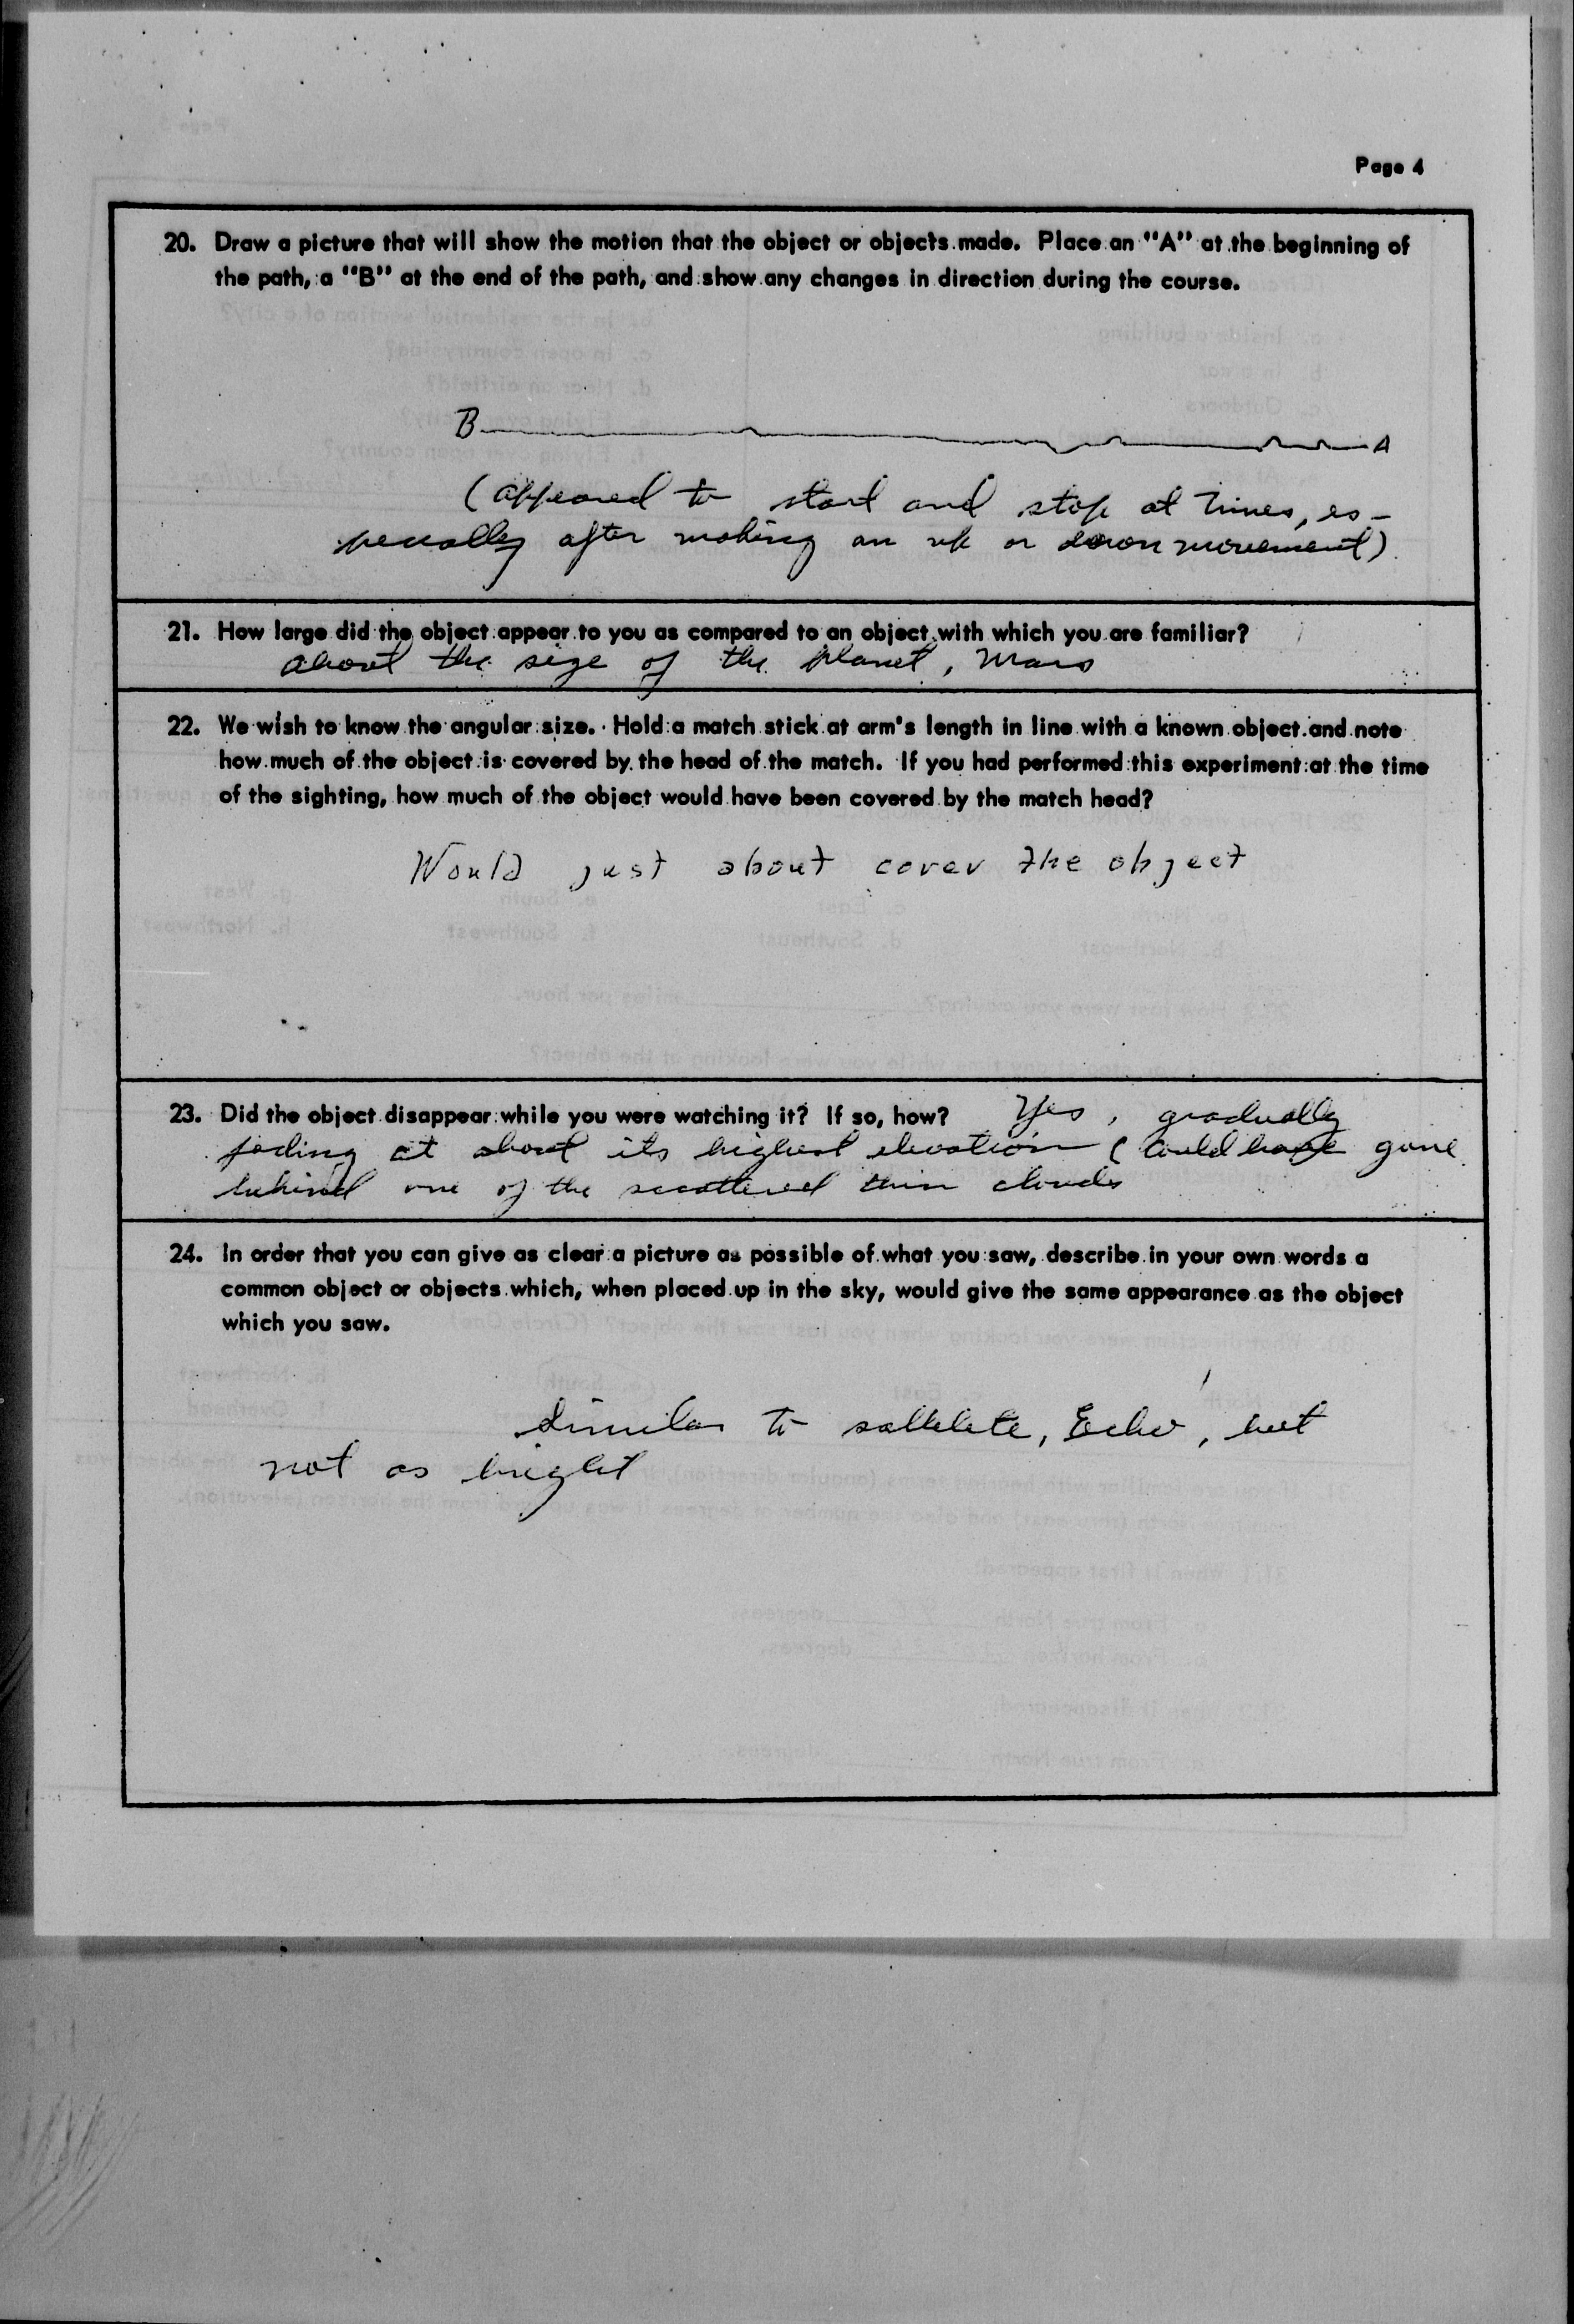 Page 4
20. Draw a picture that will show the motion that the object or objects made. Place an "A" at the beginning of
the path, a "B" at the end of the path, and show any changes in direction during the course.
B A
(appeared to start and stop at times, es-
pecially after making an up or down movement)
21. How large did the object appear to you as compared to an object with which you are familiar?
about the size of the planet, Mars
22. We wish to know the angular size. Hold a match stick at arm's length in line with a known object and note
how much of the object is covered by the head of the match. If you had performed this experiment at the time
of the sighting, how much of the object would have been covered by the match head?
Would just about cover the object
23. Did the object disappear while you were watching it? If so, how? Yes, gradually
fading at about its highest elevation (could have gone
behind one of the scattered thin clouds
24. In order that you can give as clear a picture as possible of what you saw, describe in your own words a
common object or objects which, when placed up in the sky, would give the same appearance as the object
which you saw.
Similar to satelite, Echo, but
not as bright